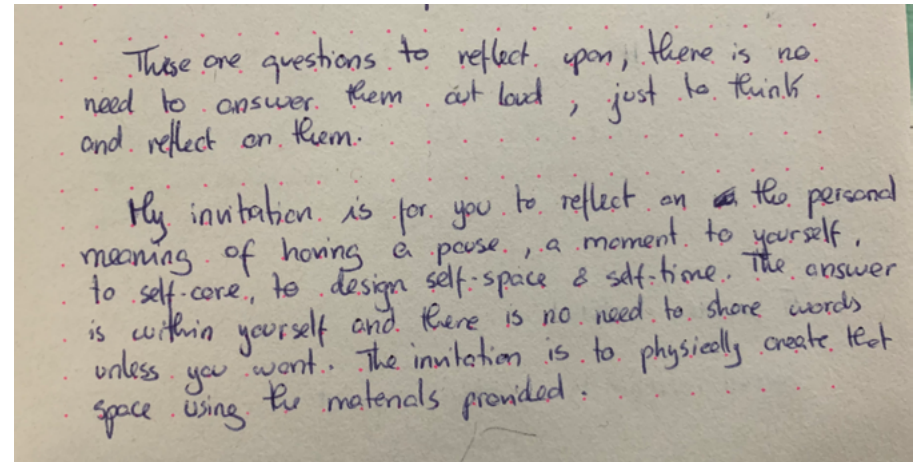 These are questions to reflect upon, there is no
need to answer them out loud, just to think
and reflect on them.
My invitation is for you to reflect on the personal
meaning of having a pause, a moment to yourself,
to self-care, to design self-space & self-time. The answer
is within yourself and there is no need to share words
unless you want. The invitation is to physically create that
space using the materials provided.